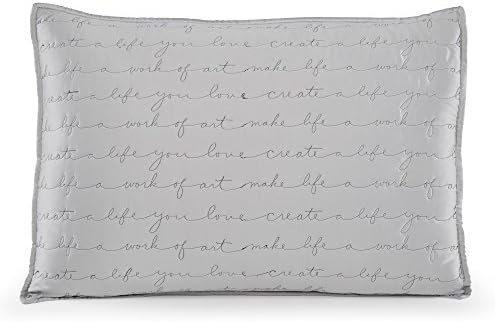 make life a work of art make life a
create a life you love create a life you
life a work of art make life a
create a life you love create a life you
a work of art make life a
create a life you love create a life you
life a work of art make life a w
create a life you love create a life you
life a work of art make life a
create a life you love create a life you